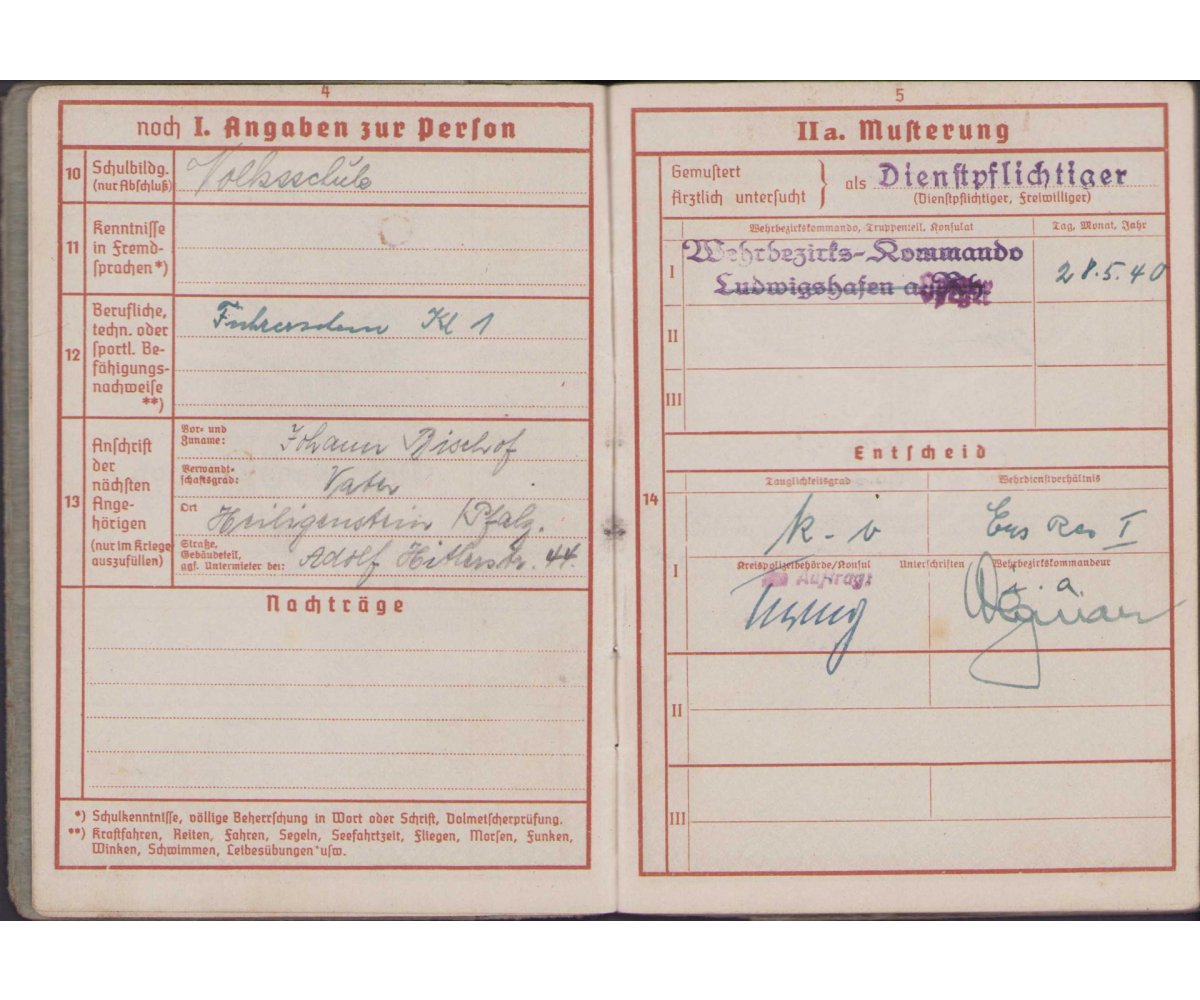 4
noch I. Angaben zur Person
10 Schulbildg. (nur Abschluß)
Volksschule
11 Kenntnisse in Fremd-
sprachen*)
12 Berufliche,
techn. oder
sportl. Be-
fähigungs-
nachweise
**)
Führerschein Kl 1
13 Anschrift
der
nächsten
Ange-
hörigen
(nur im Kriege
auszufüllen)
Vor- und
Zuname:
Johann Bischof
Verwandt-
schaftsgrad:
Vater
Ort
Heiligenstein /Pfalz.
Straße,
Gebäudeteil,
ggf. Untermieter bei:
Adolf Hitlerstr. 44.
Nachträge
*) Schulkenntnisse, völlige Beherrschung in Wort oder Schrift, Dolmetscherprüfung.
**) Kraftfahren, Reiten, Fahren, Segeln, Seefahrtzeit, Fliegen, Morsen, Funken,
Winken, Schwimmen, Leibesübungen usw.
5
IIa. Musterung
Gemustert
Ärztlich untersucht
} als Dienstpflichtiger
(Dienstpflichtiger, Freiwilliger)
Wehrbezirkskommando, Truppenteil, Konsulat
Tag, Monat, Jahr
I
Wehrbezirks-Kommando
Ludwigshafen
28.5.40
II
III
14
Entscheid
Tauglichkeitsgrad
Wehrdienstverhältnis
I
k.v
Ers Res I
Kreispolizeibehörde/Konsul Unterschriften Wehrbezirkskommandeur
Auftrag:
II
III